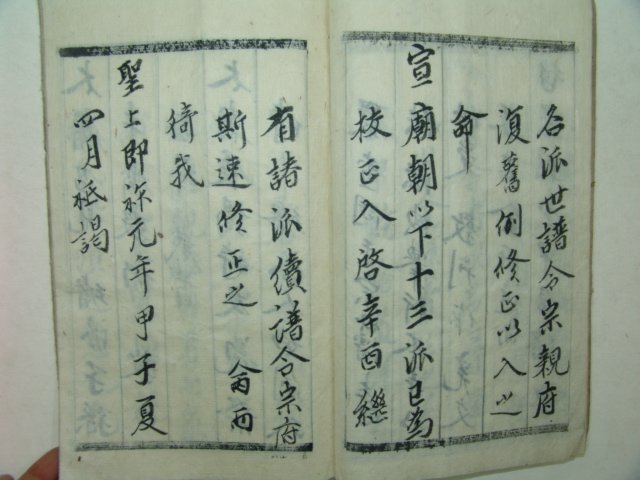 各派世譜令宗親府
復舊例修正以入之
命
宣廟朝以下十三派已為
校正入啓辛酉繼
有諸派續譜令宗府
斯速修正之 兪而
猗我
聖上即祚元年甲子夏
四月祗謁